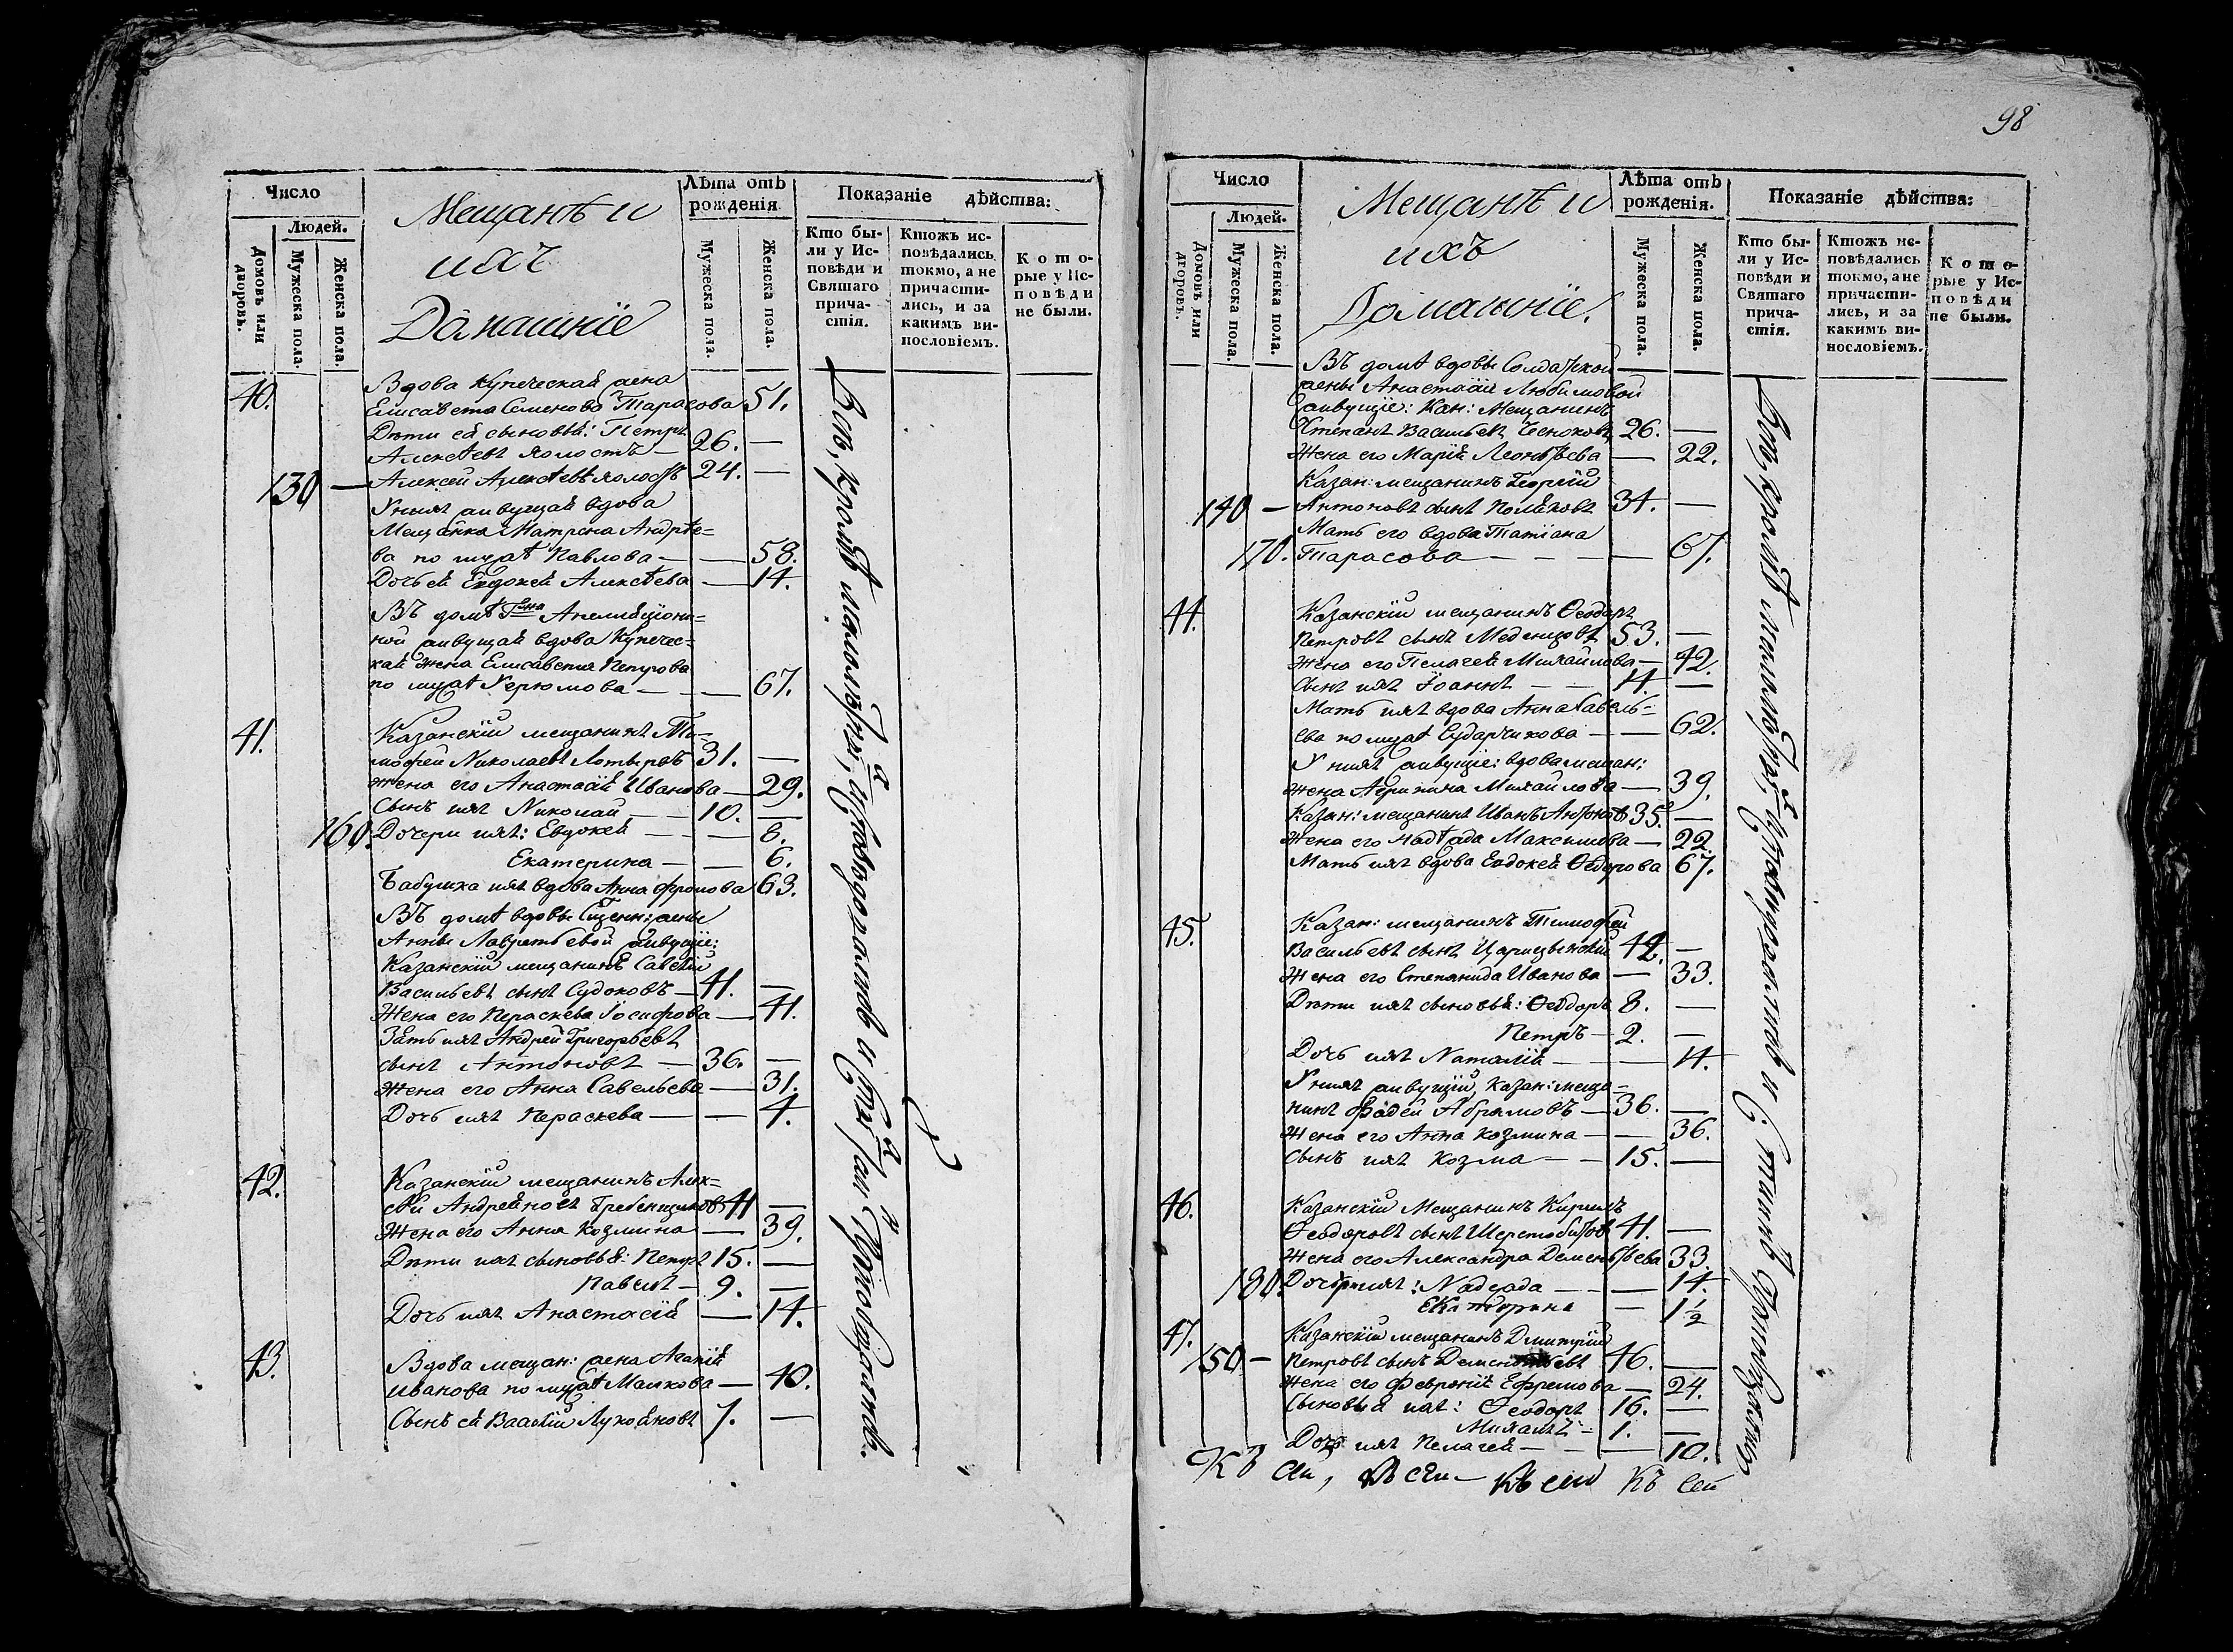 98
Число
Людей.
Домовъ или дворовъ.
Мужеска пола.
Женска пола.
Мещанѣ и
ихъ
Домашніе
Лѣта отъ рожденія
Мужеска пола.
Женска пола.
Показаніе дѣйства:
Кто бы-
ли у Ис-
повѣди и
Святаго
прича-
стія.
Ктожъ ис-
повѣдались
токмо, а не
причасти-
лись, и за
какимъ ви-
нословіемъ.
Кото-
рые у Ис-
повѣди
не были.
40. Вдова купеческая жена
Елисавета Семенова Тарасова 51.
Дѣти ея сыновья: Петръ
Алексѣевъ холостъ — 26. —
130 — Алексей Алексѣевъ холостъ 24. —
У нихъ живущая вдова
Мещанка Матрена Андрѣе=
ва по мужѣ Павлова — — 58.
Дочь ея Евдокея Алексѣева — 14.
Въ домѣ Гжа
ной живущая вдова Купечес=
кая жена Елисавета Петрова
по мужѣ — — 67.
41. Казанскій мещанинъ Ти=
мофей Николаевъ 31. —
жена его Анастасія Иванова — 29.
Сынъ ихъ Николай — — 10. —
160. Дочери ихъ: Евдокея — — 8.
Екатерина — — 6.
Бабушка ихъ вдова Анна Фролова 63.
Въ домѣ вдовы Свщенн: жены
Анны Лаврентьевой живущіе:
Казанскій мещанинъ Савелій
Васильевъ сынъ Судоковъ — 41. —
Жена его Параскева Іосифова — 41.
Зять ихъ Андрей Григорьевъ
сынъ Антоновъ — 36. —
Жена его Анна Савельева — 31.
Дочь ихъ Параскева — — 4.
42. Казанскій мещанинъ Алек=
ѣй Андреяновъ Гребенщиковъ 41 —
Жена его Анна Козмина — 39.
Дѣти ихъ сыновья: Петръ 15. —
Павелъ — 9. —
Дочь ихъ Анастасія — 14.
43. Вдова мещан: жена Агапія
Иванова по мужѣ Малкова — 40.
Сынъ ея Василій Лукояновъ 7. —
Всѣ, кромѣ малолѣтныхъ, Исповѣдались и Святыхъ Таинъ Пріобщались.
Число
Людей.
Домовъ или дворовъ.
Мужеска пола.
Женска пола.
Мещанѣ и
ихъ
Домашніе.
Лѣта отъ рожденія.
Мужеска пола.
Женска пола.
Показаніе дѣйства:
Кто бы-
ли у Ис-
повѣди и
Святаго
прича-
стія.
Ктожъ ис-
повѣдались
токмо, а не
причасти-
лись, и за
какимъ ви-
нословіемъ.
Кото-
рые у Ис-
повѣди
не были.
Въ домѣ вдовы Солдатской
жены Анастасіи Любимовой
живущіе: Каз: Мещанинъ
Степанъ Васильевъ Чесноковъ 26. —
Жена его Марія Леонтьева — 22.
Казан: мещанинъ Георгій
140 — Антоновъ сынъ Поляковъ 34. —
Мать его вдова Татіана
170. Тарасова — — — 67.
44. Казанскій мещанинъ Ѳеодоръ
Петровъ сынъ Меденцовъ 53. —
Жена его Пелагея Михайлова — 42.
Сынъ ихъ Іоаннъ — — 14. —
Мать ихъ вдова Анна Савель=
ева по мужѣ Сударчикова — — 62.
У нихъ живущіе: вдова мещан:
жена Агрипина Михайлова — 39.
Казан: мещанинъ Иванъ Антоновъ 35. —
Жена его Надѣжда Максимова — 22.
Мать ихъ вдова Евдокея Ѳедорова 67.
45. Казан: мещанинъ Тимофей
Васильевъ сынъ Царицынскій 42. —
Жена его Степанида Иванова — 33.
Дѣти ихъ сыновья: Ѳеодоръ 8. —
Петръ — 2. —
Дочь ихъ Наталія — — 14.
У нихъ живущій Казан: меща=
нинъ Фадей Абрамовъ — 36. —
Жена его Анна Козмина — — 36.
Сынъ ихъ Козма — — 15. —
46. Казанскій Мещанинъ Кирилъ
Ѳеодоровъ сынъ Шерстобитовъ 41. —
Жена его Александра Дементьева 33.
180. Дочери ихъ: Надежда — — 14.
Екатерина — 1½
47. Казанскій мещанинъ Дмитрій
150 — Петровъ сынъ Дементьевъ 46. —
Жена его Февронія Ефремова — 24.
Сыновья ихъ: Ѳеодоръ 16. —
Михаилъ — 1. —
Дочь ихъ Пелагея — — 10.
Всѣ, кромѣ малолѣтныхъ, Исповѣдались и С. Таинъ Пріобщались
Къ сей, Къ сей — Къ сей Къ сей